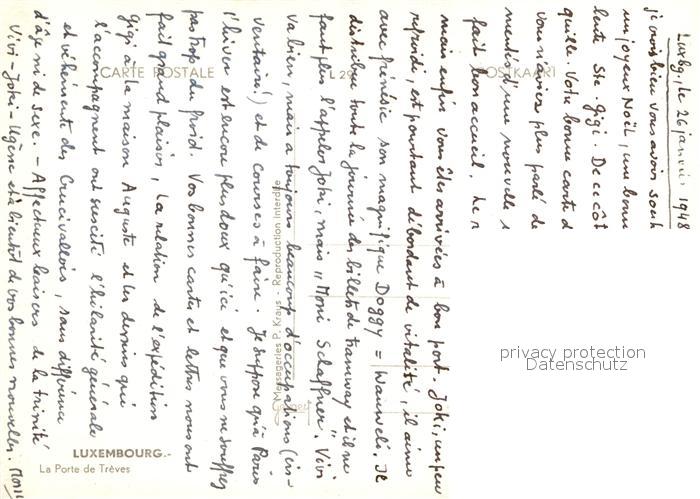 Luxbg, le 26 janvier 1948
je crois bien vous avoir souh
un joyeux Noël, une bonn
lente Ste. Gigi. De ce côt
quille. Votre bonne carte d
vous n'aviez plus parlé de
mentis d'une nouvelle
fait bon accueil. Le
mais enfin vous êtes arrivées à bon port. Joki, un peu
refroidi, est pourtant débordant de vitalité, il aime
avec frénésie son magnifique Doggy = Wauweli. Il
distribue toute la journée des billets de tramway et il ne
faut plus l'appeler Joki, mais „Moni Schaffner". Vivi
va bien, mais a toujours beaucoup d'occupations (in-
ventaire!) et de courses à faire. Je suppose qu'à Paris
l'hiver est encore plus doux qu'ici et que vous ne souffrez
pas trop du froid. Vos bonnes cartes et lettres nous ont
fait grand plaisir, la relation de l'expédition
Gigi à la maison Auguste et les dessins qui
l'accompagnent ont suscité l'hilarité générale
et véhémente des Crucivallois, sans différence
d'âge ni de sexe. – Affectueux baisers de la trinité
Vivi – Joki – Ugène et à bientôt de vos bonnes nouvelles.
CARTE POSTALE
L 29
POSTKAART
Messageries P. Kraus - Reproduction interdite
LUXEMBOURG.-
La Porte de Trèves
privacy protection
Datenschutz